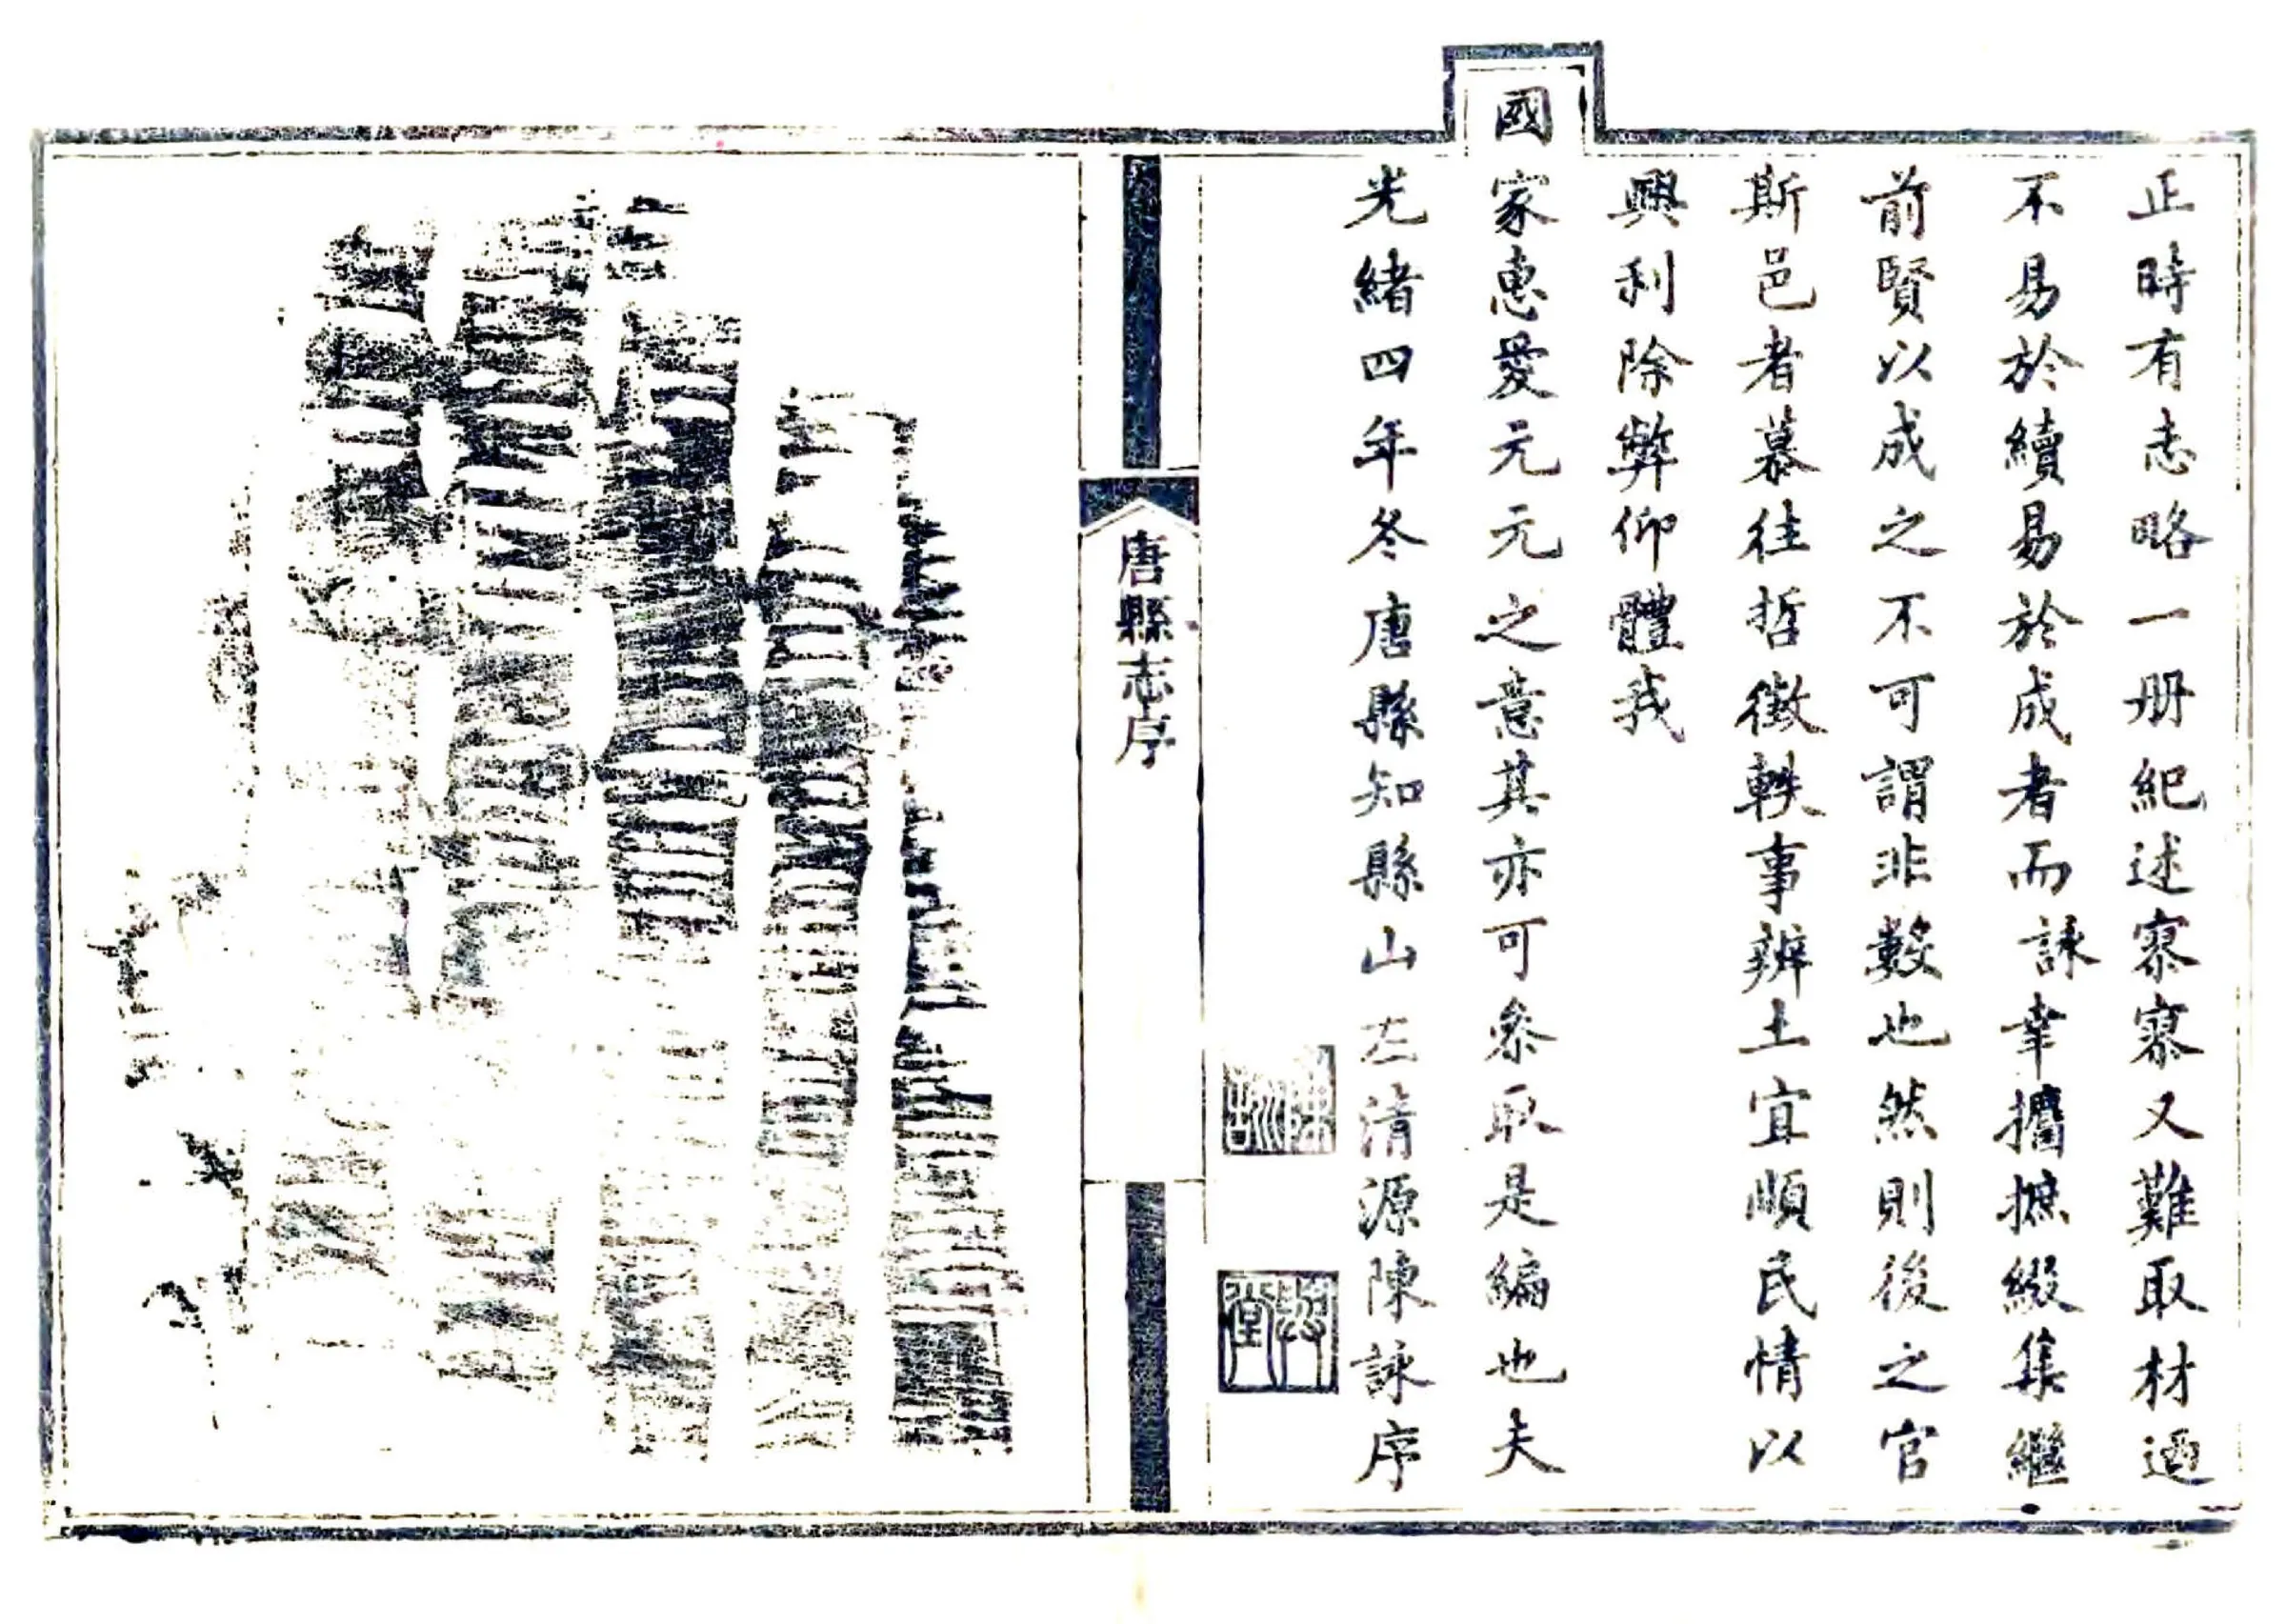 正時有志略一册紀述寥寥又難取材迺
不易於續易於成者而詠幸攟摭綴集繼
前賢以成之不可謂非藪也然則後之官
斯邑者慕往哲徵軼事辨土宜順民情以
興利除弊仰體我
國家惠愛元元之意其亦可叅取是編也夫
光緒四年冬唐縣知縣山左清源陳詠序
陳詠
唐縣志序